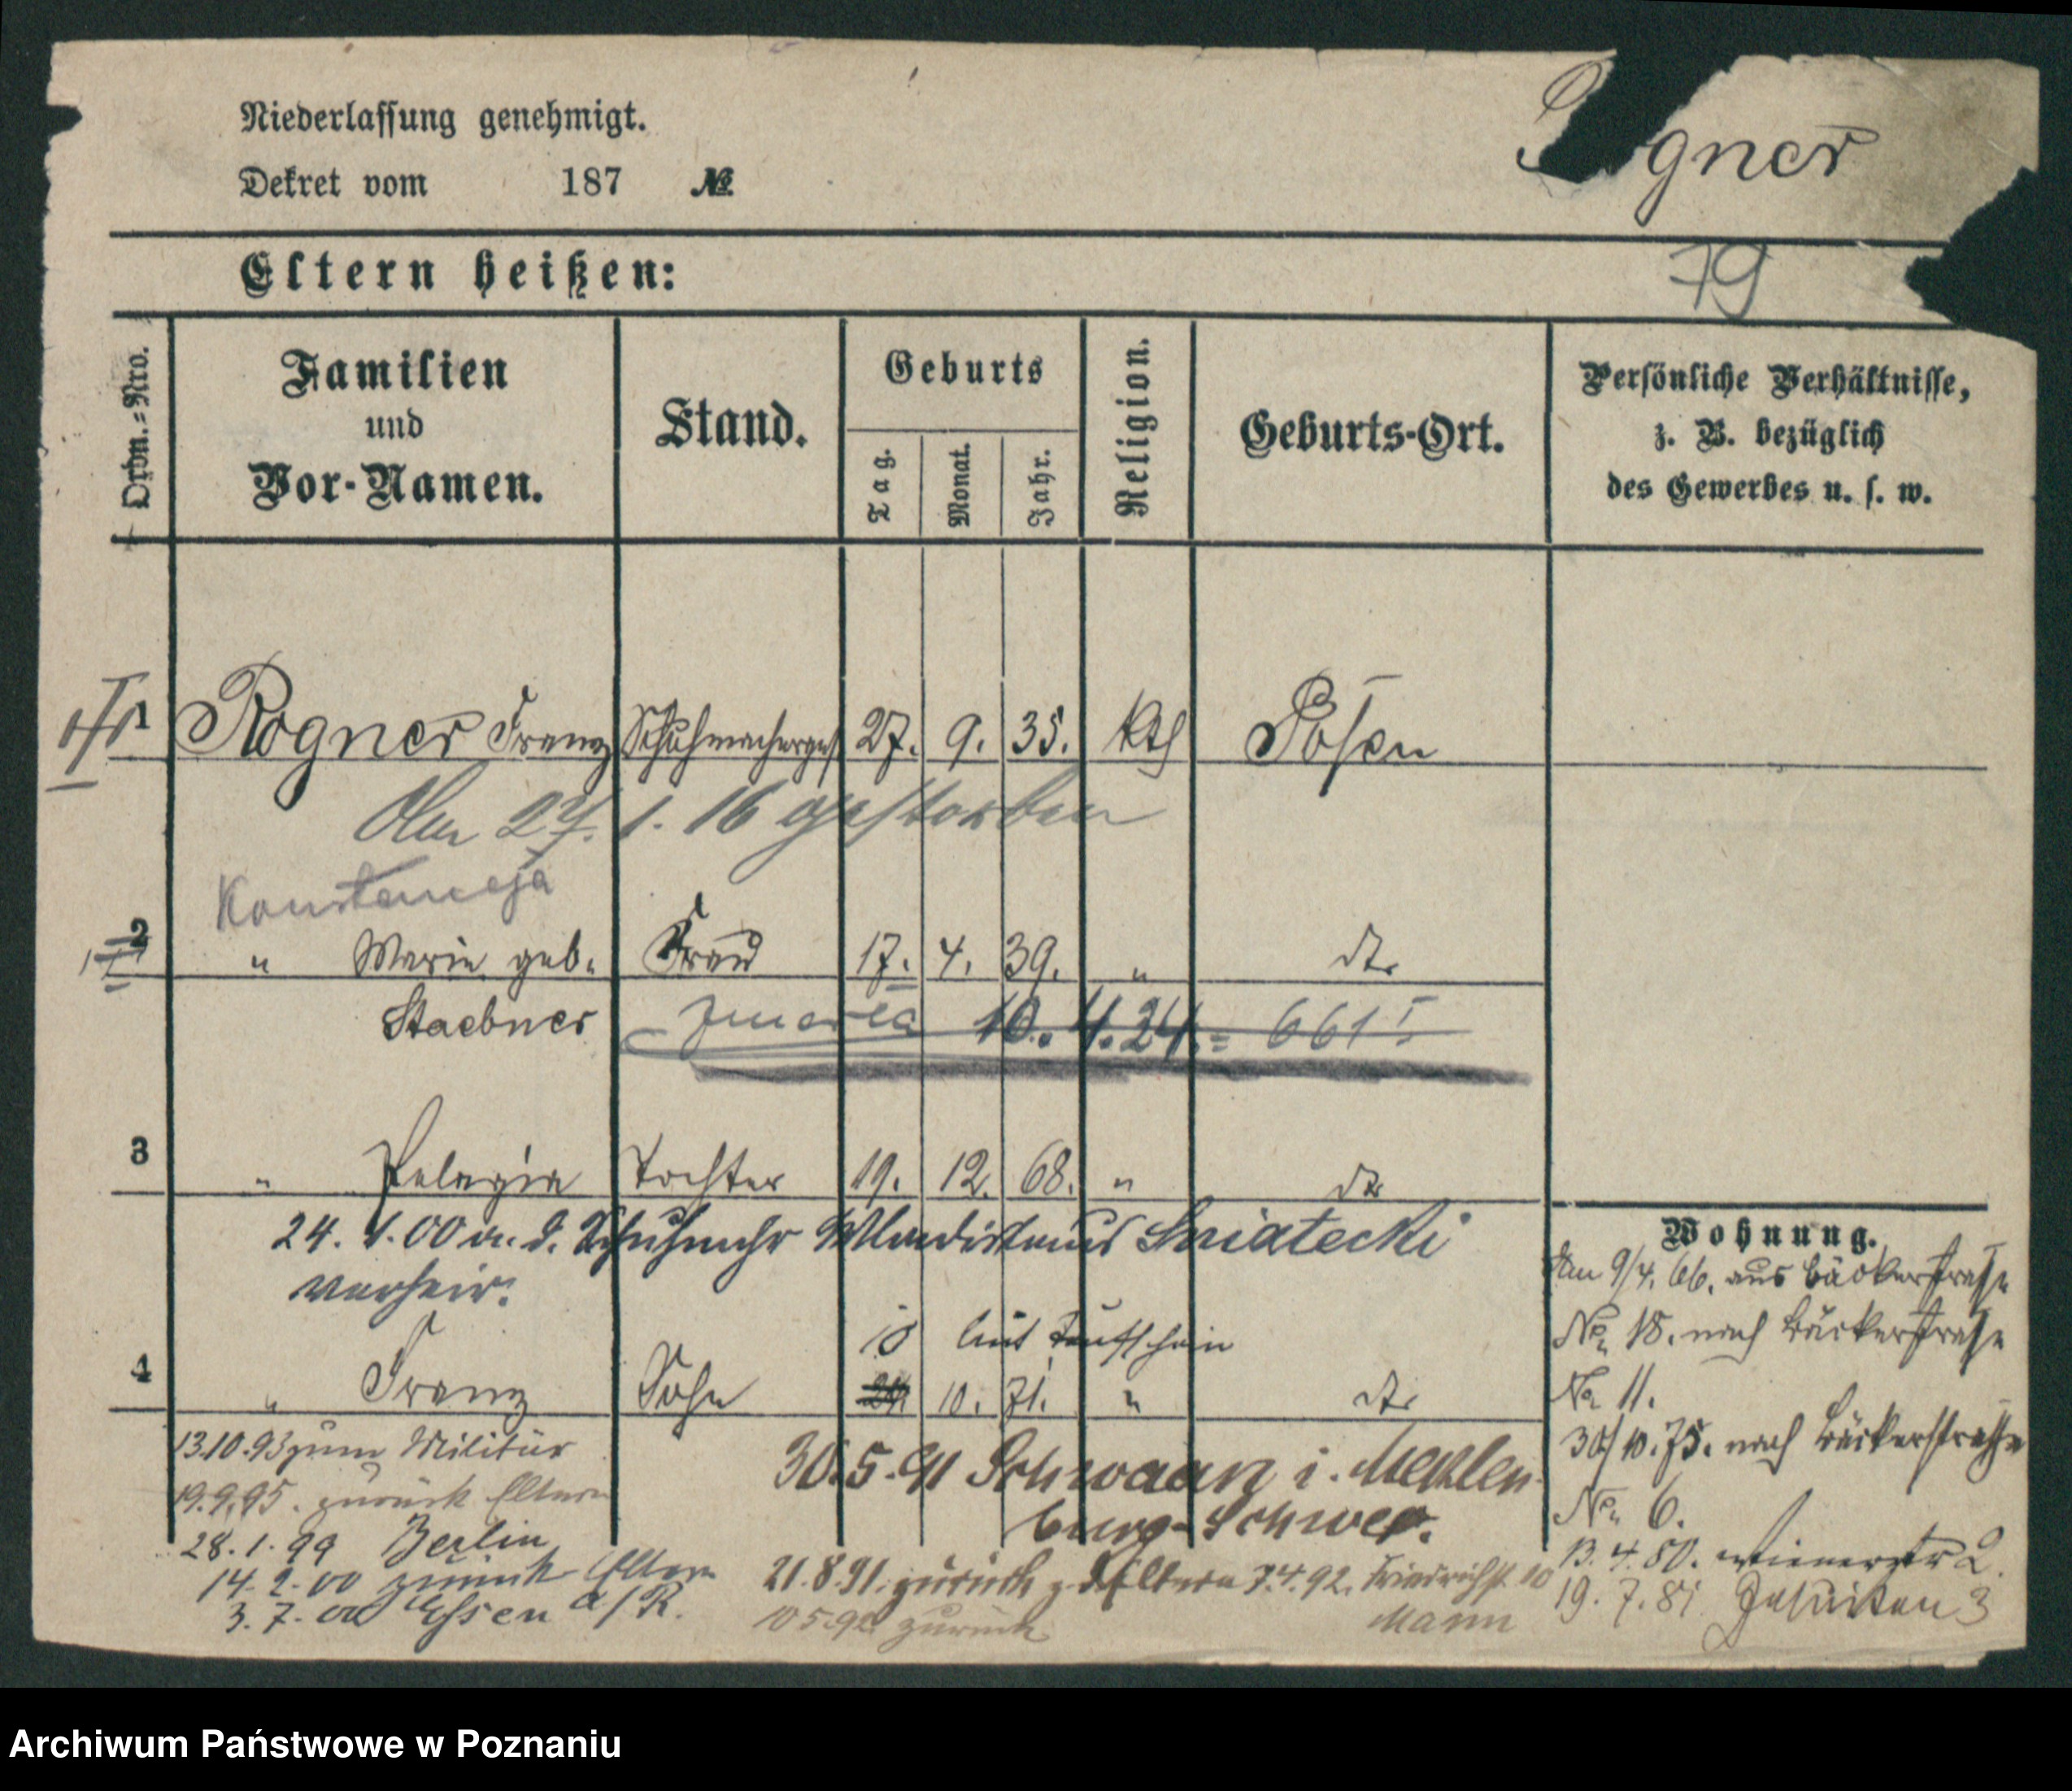 Niederlassung genehmigt.
Dekret vom 187 №
gner
79
Eltern heißen:
Ordn.-Nro.
Familien
und
Vor-Namen.
Stand.
Geburts
Tag.
Monat.
Jahr.
Religion.
Geburts-Ort.
Persönliche Verhältnisse,
z. B. bezüglich
des Gewerbes u. s. w.
1 Rogner Franz Schuhmacherges 27. 9. 35. Kth Posen
Am 27. 1. 16 gestorben
Konstancja
2 " Marie geb. Frau 17. 4. 39. " dto
Staebner zmarła 10. 4. 24. = 661 I
3 " Pelagia Tochter 19. 12. 68. " dto
24. 1. 00 m. d. Schuhmchr Wladislaus Swiatecki
verheir.
10 laut Taufschein
4 " Franz Sohn 10. 71. " dto
13.10.93 zum Militär
19.9.95. zurück Eltern
28.1.99 Berlin
14.2.00 zurück Eltern
3.7.00 Essen a/R.
30.5.91 Schwaan i. Mecklen-
burg-Schwer.
21.8.91. zurück z. d. Eltern 7.4.92. Friedrichst. 10
Mann
10 5 92 zurück
Wohnung.
Am 9/4. 66. aus Bäckerstraße
No 18. nach Bäckerstraße
No 11.
30/10.75. nach Bäckerstraße
No 6.
13.4.80. Wienerstr 2.
19.7.81 Jesuiten 3
Archiwum Państwowe w Poznaniu